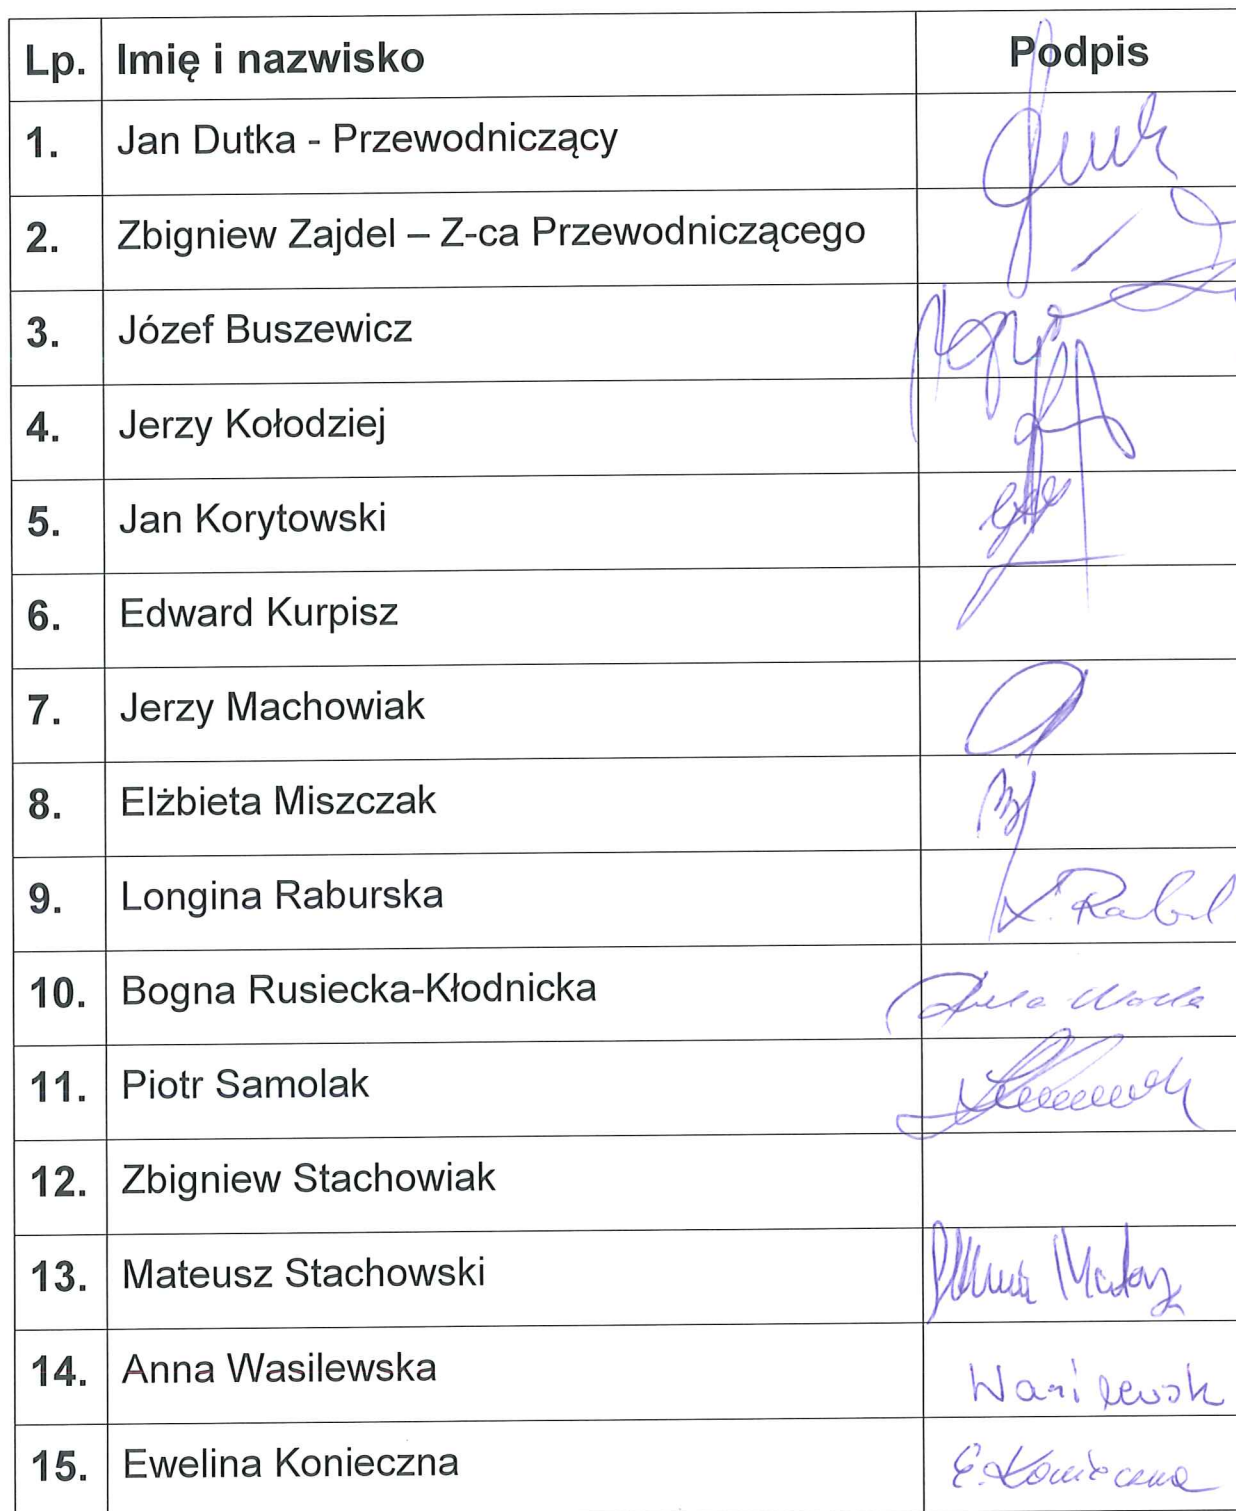 Lp. Imię i nazwisko Podpis
1. Jan Dutka - Przewodniczący
2. Zbigniew Zajdel – Z-ca Przewodniczącego
3. Józef Buszewicz
4. Jerzy Kołodziej
5. Jan Korytowski
6. Edward Kurpisz
7. Jerzy Machowiak
8. Elżbieta Miszczak
9. Longina Raburska
10. Bogna Rusiecka-Kłodnicka
11. Piotr Samolak
12. Zbigniew Stachowiak
13. Mateusz Stachowski
14. Anna Wasilewska Wasilewsk
15. Ewelina Konieczna E. Konieczna